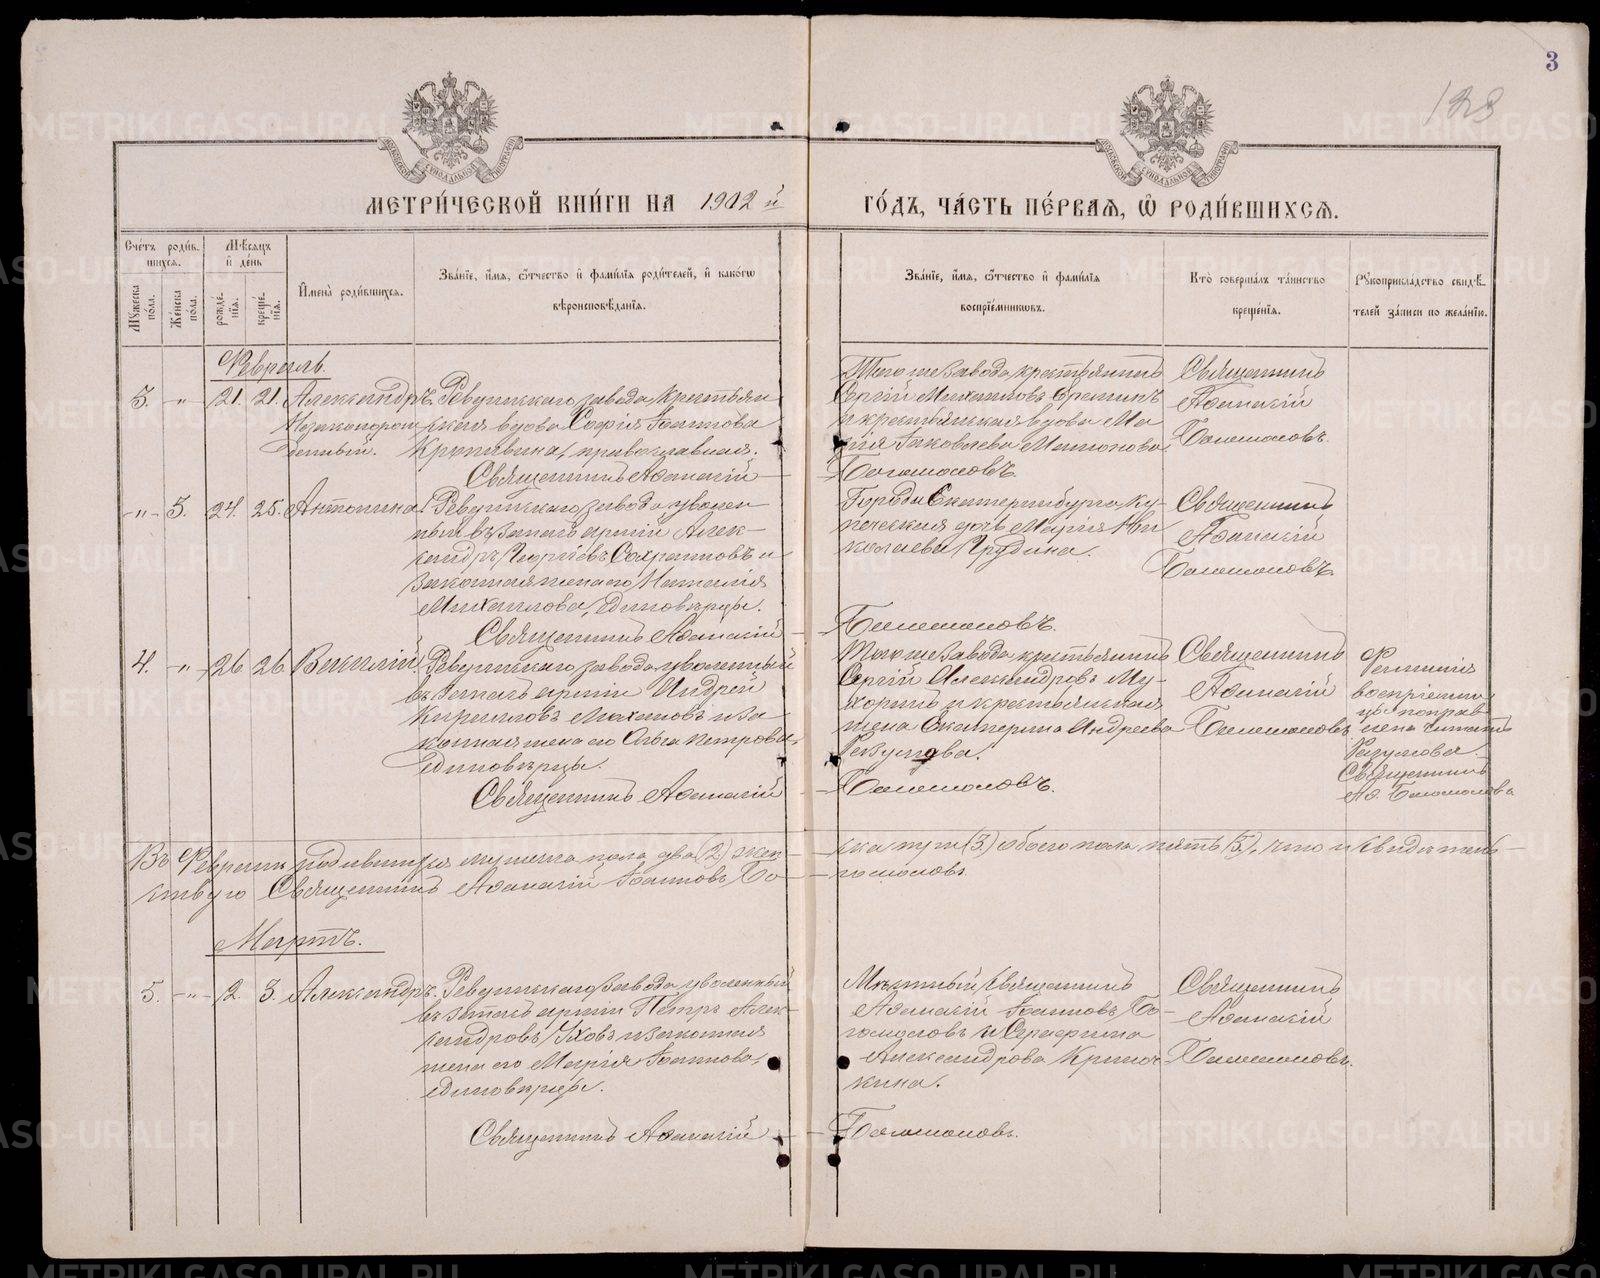 3
МЕТРИ́ЧЕСКОЙ КНИ́ГИ НА 1902 й ГО́ДЪ, ЧА́СТЬ ПЕ́РВАЯ, Ѡ҆ РОДИ́ВШИХСЯ.
Сче́тъ роди́вшихся.
Мꙋжеска по́ла.
Же́нска по́ла.
Мѣ́сяцъ и҆ де́нь
рожде́нїя.
креще́нїя.
И҆мена̀ роди́вшихся.
Зва́нїе, и҆́мя, ѻ҆́тчество и҆ фами́лїя роди́телей, и҆ како́гѡ
вѣроисповѣ́данїя.
Зва́нїе, и҆́мя, ѻ҆́тчество и҆ фами́лїя
воспрїе́мникѡвъ.
Кто̀ соверша́лъ та́инство
креще́нїя.
Рꙋкоприкла́дство свидѣ́телей за́писи по жела́нїю.
Февраль.
3. " 21. 21. Александръ
Незаконорож
денный.
Ревдинскаго завода, крестьян
ская вдова Софія Іоаннова
православная.
Священникъ Аѳанасій
Тогоже завода, крестьянинъ
Сергій Михаиловъ Еремин
и крестьянская вдова Ма
рія Іаковлева
Богомоловъ.
Священникъ
Аѳанасій
Богомоловъ.
" 3. 24. 25. Антонина
Ревдинскаго завода, уволен
ный въ запасъ арміи Алек
сандръ Георгіевъ и
законная жена его Наталія
Михаилова, единовѣрцы.
Священникъ Аѳанасій
Города Екатеринбурга, ку
печеская дочь Марія Ни
колаева Грудина.
Богомоловъ.
Священникъ
Аѳанасій
Богомоловъ.
4. " 26 26 Василій
Ревдинскаго завода, уволенный
въ запасъ арміи Андрей
Кирилловъ и за
конная жена его Ольга Петрова,
единовѣрцы.
Священникъ Аѳанасій
Тогоже завода, крестьянинъ
Сергій Александровъ Му
хоринъ и крестьянская
жена Екатерина Андреева
Разумова.
Богомоловъ.
Священникъ
Аѳанасій
Богомоловъ.
Фамилія
воспріемни
цы поправ
лена читать
Разумова
Священникъ
Аѳ. Богомоловъ
Въ Февралѣ родившихся мужеска пола два (2) жен
ска три (3) обоего пола пять (5), что и свидѣтель
ствую Священникъ Аѳанасій Іоанновъ Бо
гомоловъ
Мартъ.
5. " 2. 3. Александръ.
Ревдинскаго завода, уволенный
въ запасъ арміи Петръ Алек
сандровъ Уховъ и законная
жена его Марія Іоаннова,
единовѣрцы.
Священникъ Аѳанасій
Мѣстный священникъ
Аѳанасій Іоанновъ Бо
гомоловъ и Серафима
Александрова
Богомоловъ.
Священникъ
Аѳанасій
Богомоловъ.
METRIKI.GASO-URAL.RU